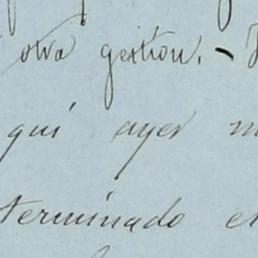 otra gestion. -
qui ayer m
terminado e